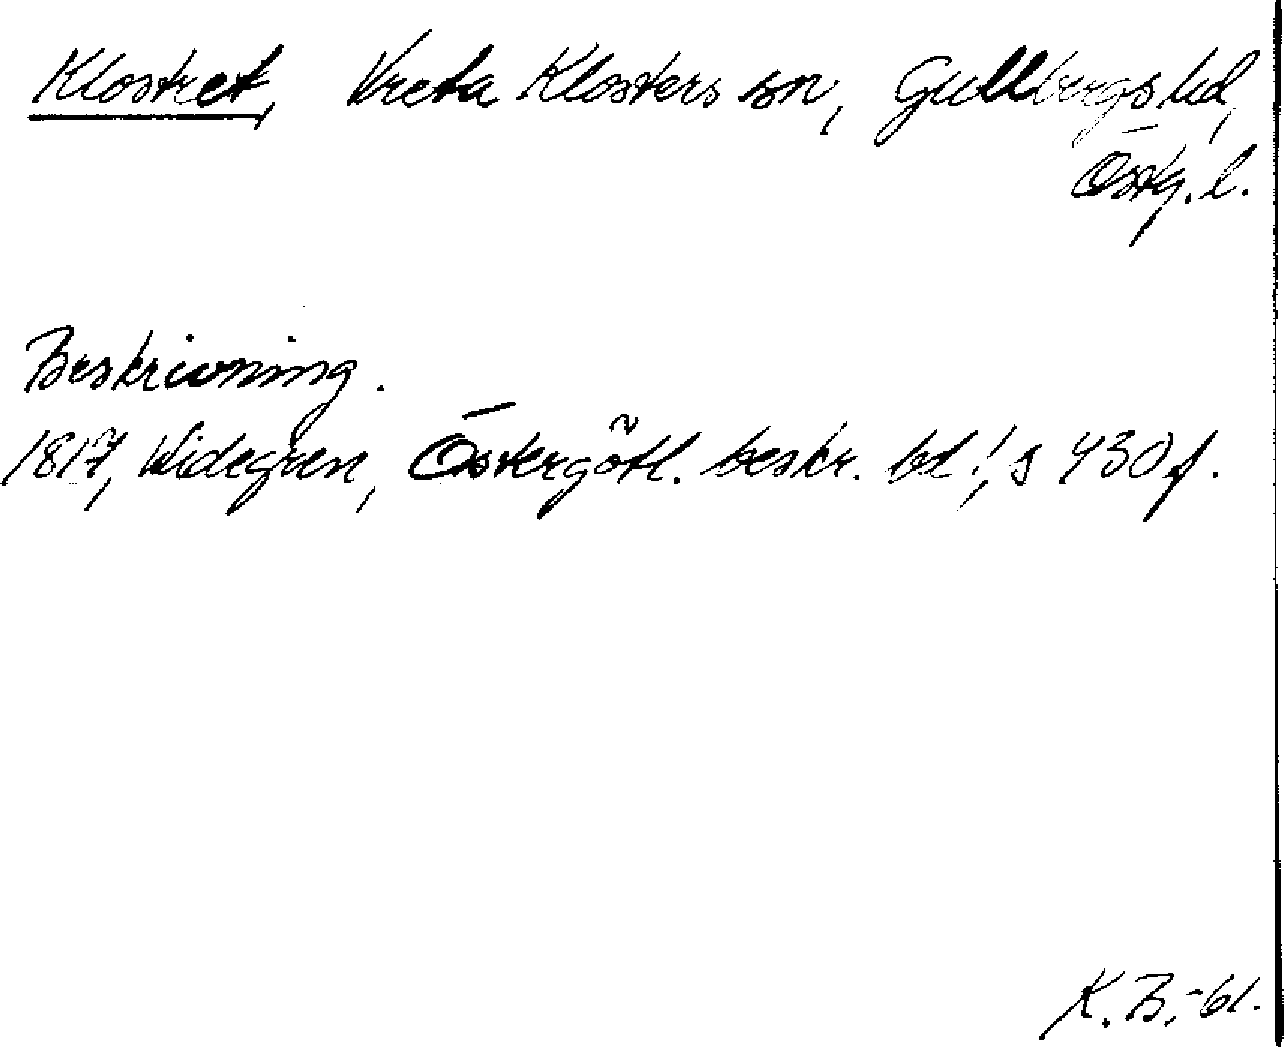 Klostret, Vreta Klosters sn, Gullbergs hd,
Östg. l.
Beskrivning.
1817, Widegren, Östergötl. beskr. bd 1, s 430 f.
K. B. -61.